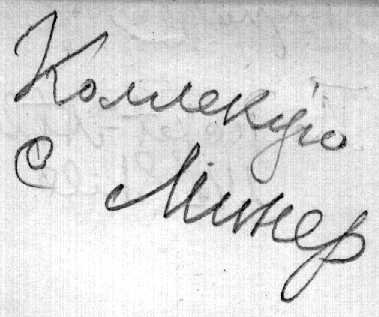 Коллекцію
С Минер